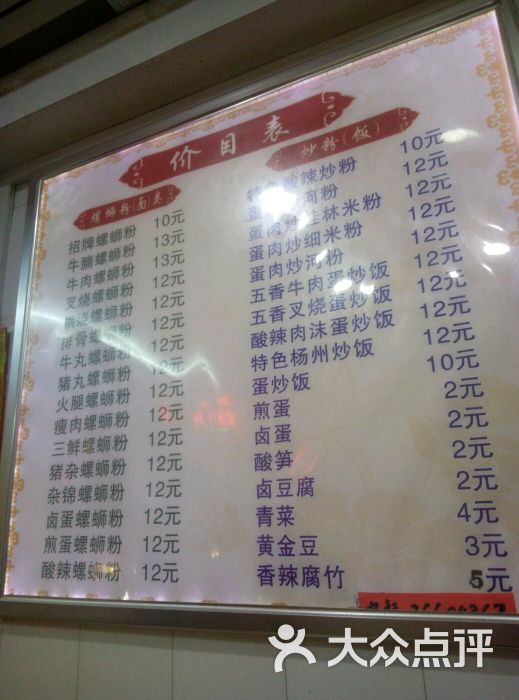 价目表
螺蛳粉(面)类
招牌螺蛳粉 10元
牛腩螺蛳粉 13元
牛肉螺蛳粉 13元
叉烧螺蛳粉 12元
锅烧螺蛳粉 12元
排骨螺蛳粉 12元
牛丸螺蛳粉 12元
猪丸螺蛳粉 12元
火腿螺蛳粉 12元
瘦肉螺蛳粉 12元
三鲜螺蛳粉 12元
猪杂螺蛳粉 12元
杂锦螺蛳粉 12元
卤蛋螺蛳粉 12元
煎蛋螺蛳粉 12元
酸辣螺蛳粉 12元
炒粉(饭)
特 酸辣炒粉 10元
蛋 河粉 12元
蛋肉炒桂林米粉 12元
蛋肉炒细米粉 12元
蛋肉炒河粉 12元
五香牛肉蛋炒饭 12元
五香叉烧蛋炒饭 12元
酸辣肉沫蛋炒饭 12元
特色杨州炒饭 12元
蛋炒饭 10元
煎蛋 2元
卤蛋 2元
酸笋 2元
卤豆腐 2元
青菜 4元
黄金豆 3元
香辣腐竹 5元
大众点评